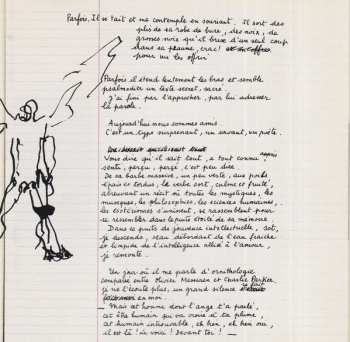 Parfois, il se tait et me contemple en souriant. Il sort des
plis de sa robe de bure, des noix, de
grosses noix qu'il brise d'un seul coup
dans sa paume, crac!
pour me les offrir
Parfois il étend lentement les bras et semble
psalmodier un texte secret, sacré
J'ai fini par l'approcher, par lui adresser
la parole.
Aujourd'hui nous sommes amis
C'est un type surprenant, un savant, un poète.
Vous dire qu'il sait tout, a tout connu, appris
senti, perçu, percé, c'est peu dire
De sa barbe massive, un peu verte, aux poils
épais et tordus, le verbe sort, culmine et fruité,
abreuvant un récit où toutes les mystiques, les
musiques, les philosophies, les sciences humaines,
les ésotérismes s'unissent, se rassemblent pour
se ressembler dans le puits étoilé de sa mémoire.
Dans ce puits de jouvence intellectuelle, sot,
je descends, seau débordant de l'eau fraîche
et limpide de l'intelligence alliée à l'amour,
je remonte.
Un jour où il me parle d'ornithologie
comparée entre Olivier Messiaen et Charlie Parker,
je ne l'écoute plus, un grand silence se fait
en moi
Mais cet homme dont l'ange t'a parlé,
cet être humain qui va croire à ta plume
cet humain introuvable, eh bien, eh bien oui,
il est là! le voici! Devant toi!